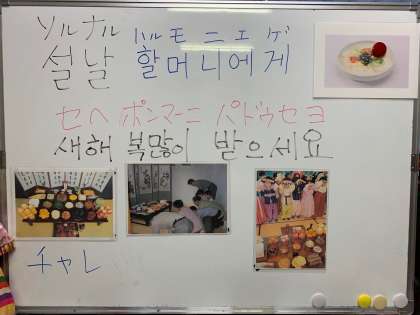 ソルナル ハルモニエゲ
설날 할머니에게
セヘ ポンマーニ パドゥセヨ
새해 복많이 받으세요
チャレ